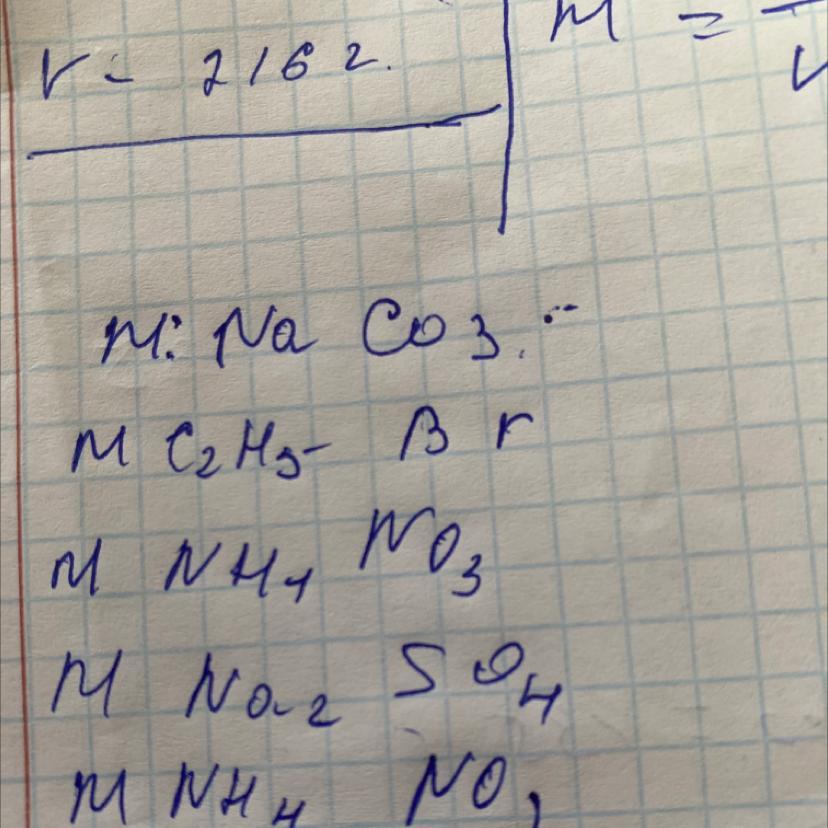 V - 216 г.
M =
M: Na CO3.
M C2H5- Br
M NH4 NO3
M Na2 SO4
M NH4 NO